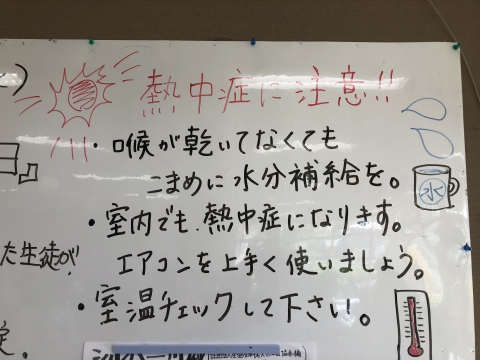 熱中症に注意!!
・喉が乾いてなくても
こまめに水分補給を。
水
・室内でも熱中症になります。
た生徒が!
エアコンを上手く使いましょう。
・室温チェックして下さい。
定。